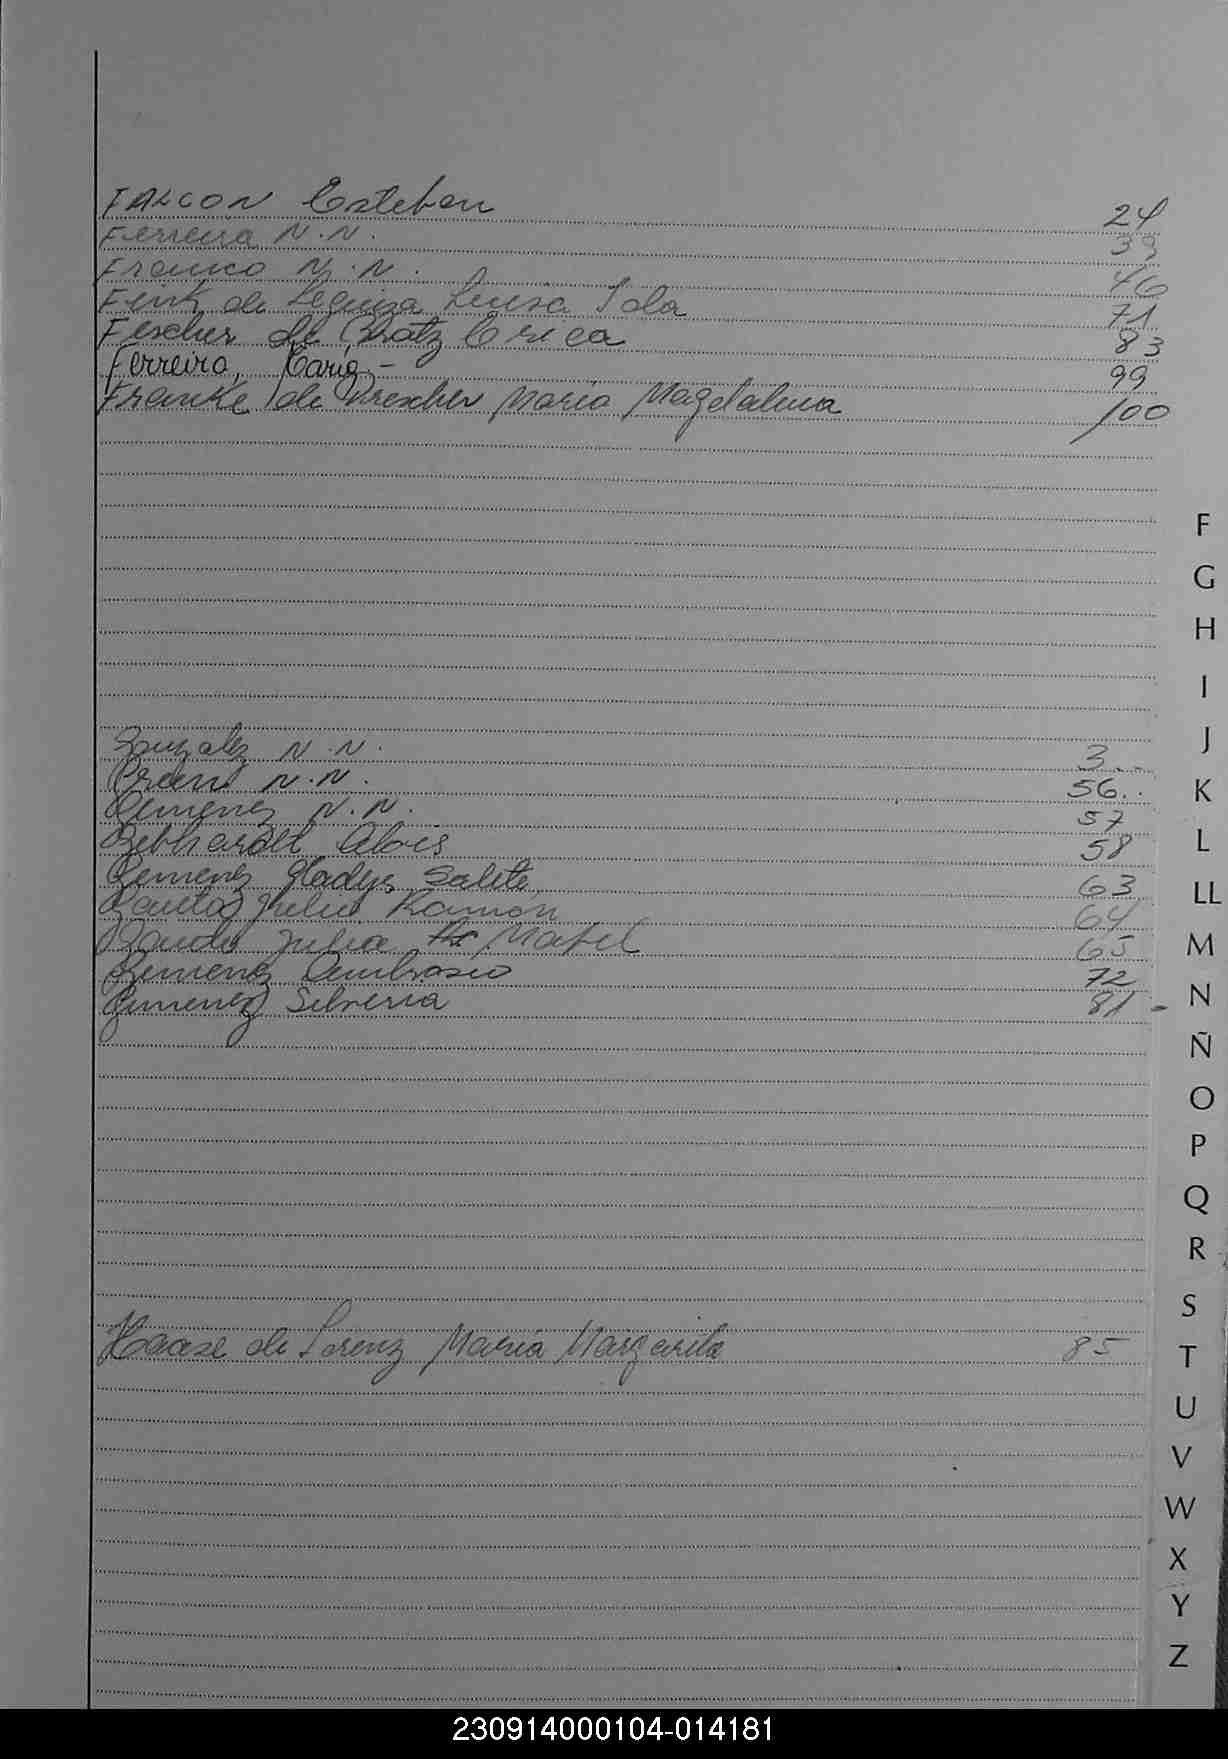 FALCON Esteban 24
Ferreira N.N. 39
Franco N.N. 46
Fink de Leguiza Luisa Ida 71
Fischer de Erica 83
Ferreira, Maria.- 99
Franke de Drescher Maria Magdalena 100
Gonzalez N.N. 3..
N.N. 56..
Gimenez N.N. 57
Gebhardt Alois 58
Gimenez Gladys Salete 63
Julio Ramón 64
Julia Mabel 65
Gimenez Ambrosio 72
Gimenez Silveria 81-
Haase de Lorenz Maria Margarita 85
F
G
H
I
J
K
L
LL
M
N
Ñ
O
P
Q
R
S
T
U
V
W
X
Y
Z
230914000104-014181